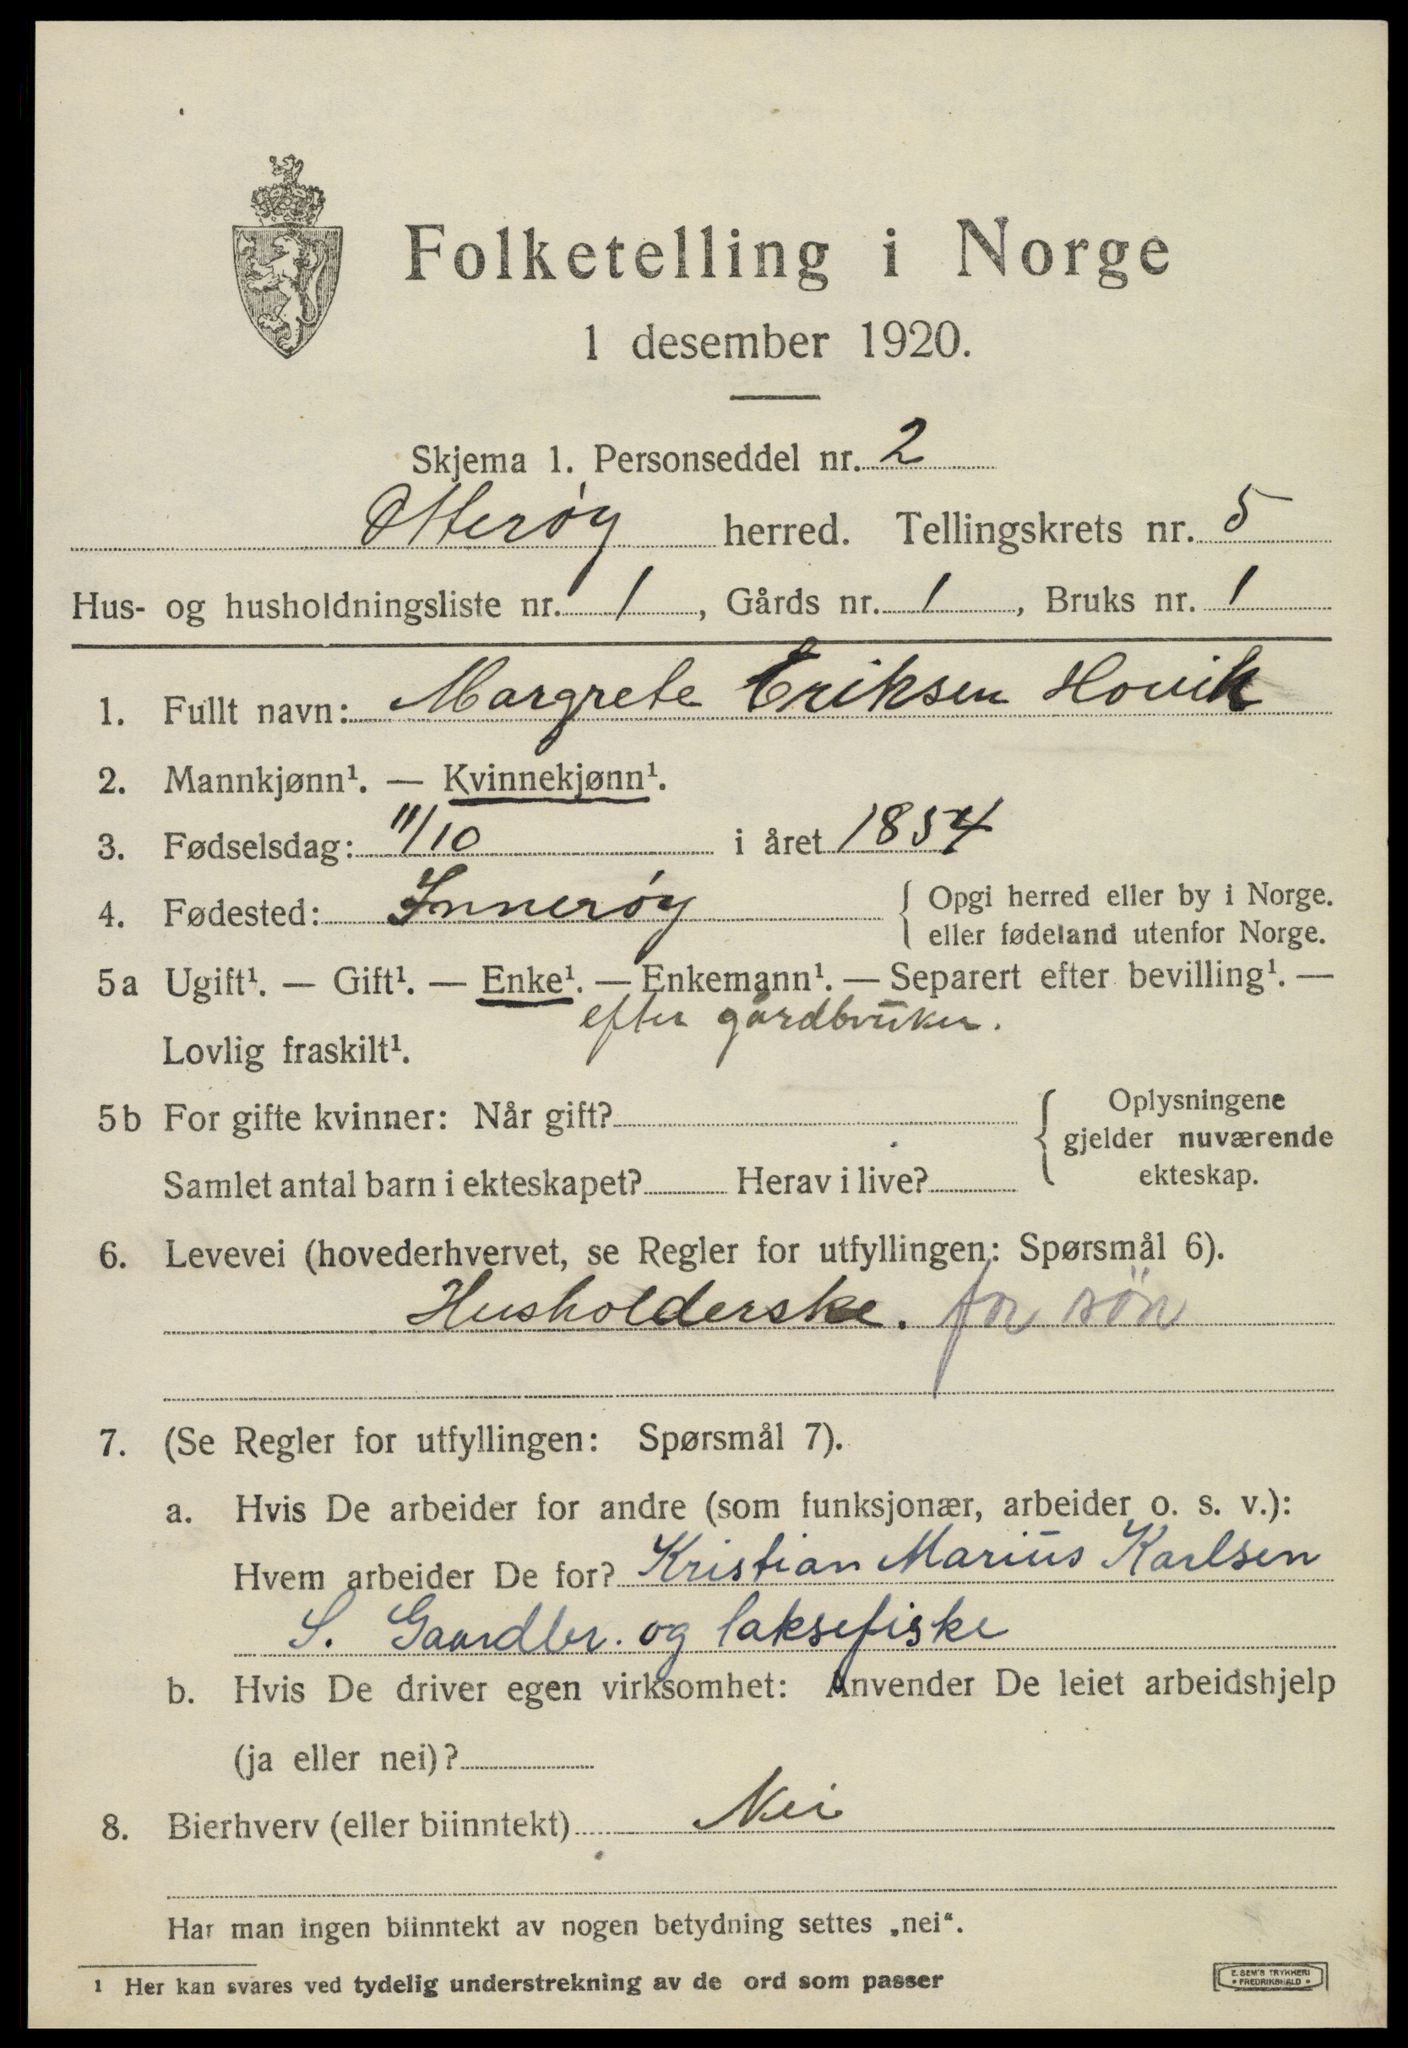 Folketelling i Norge
1 desember 1920.
Skjema 1. Personseddel nr. 2
Otterøy herred. Tellingskrets nr. 5
Hus- og husholdningsliste nr. 1, Gårds nr. 1, Bruks nr. 1
1. Fullt navn: Margrete Eriksen Hovik
2. Mannkjønn¹. — Kvinnekjønn¹.
3. Fødselsdag: 11/10 i året 1854
4. Fødested: Innerøy { Opgi herred eller by i Norge.
eller fødeland utenfor Norge.
5a Ugift¹. — Gift¹. — Enke¹. — Enkemann¹. — Separert efter bevilling¹. —
efter gårdbruker.
Lovlig fraskilt¹.
5b For gifte kvinner: Når gift? { Oplysningene
gjelder nuværende
Samlet antal barn i ekteskapet? Herav i live? ekteskap.
6. Levevei (hovederhvervet, se Regler for utfyllingen: Spørsmål 6).
Husholderske. for søn
7. (Se Regler for utfyllingen: Spørsmål 7).
a. Hvis De arbeider for andre (som funksjonær, arbeider o. s. v.):
Hvem arbeider De for? Kristian Marius Karlsen
S. Gaardbr. og laksefiske
b. Hvis De driver egen virksomhet: Anvender De leiet arbeidshjelp
(ja eller nei)?
8. Bierhverv (eller biinntekt) Nei
Har man ingen biinntekt av nogen betydning settes „nei“.
¹ Her kan svares ved tydelig understrekning av de ord som passer
E. SEM'S TRYKKERI
• FREDRIKSHALD •